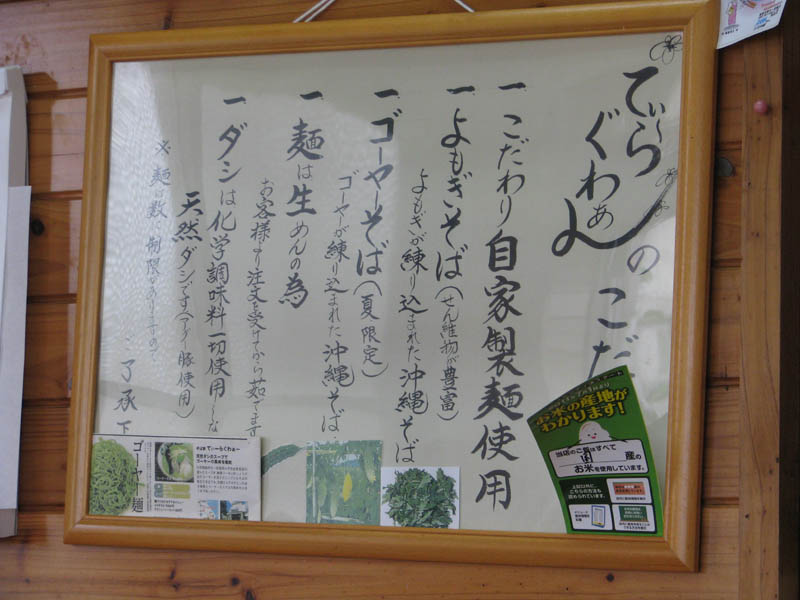 てぃ〜らぐわぁ〜のこだ
一 こだわり自家製麺使用
一 よもぎそば(せん維物が豊富)
よもぎが練り込まれた沖縄そば
一 ゴーヤーそば(夏限定)
ゴーヤーが練り込まれた沖縄そば
一 麺は生めんの為
お客様より注文を受けてから茹でます
一 ダシは化学調味料一切使用しな
天然ダシです(アグー豚使用)
※麺の数に制限がありますので
了承下
ゴーヤー麺
そば家 てぃーらぐわぁー
お米の産地が
わかります!
当店のご飯はすべて
国産の
お米を使用しています。